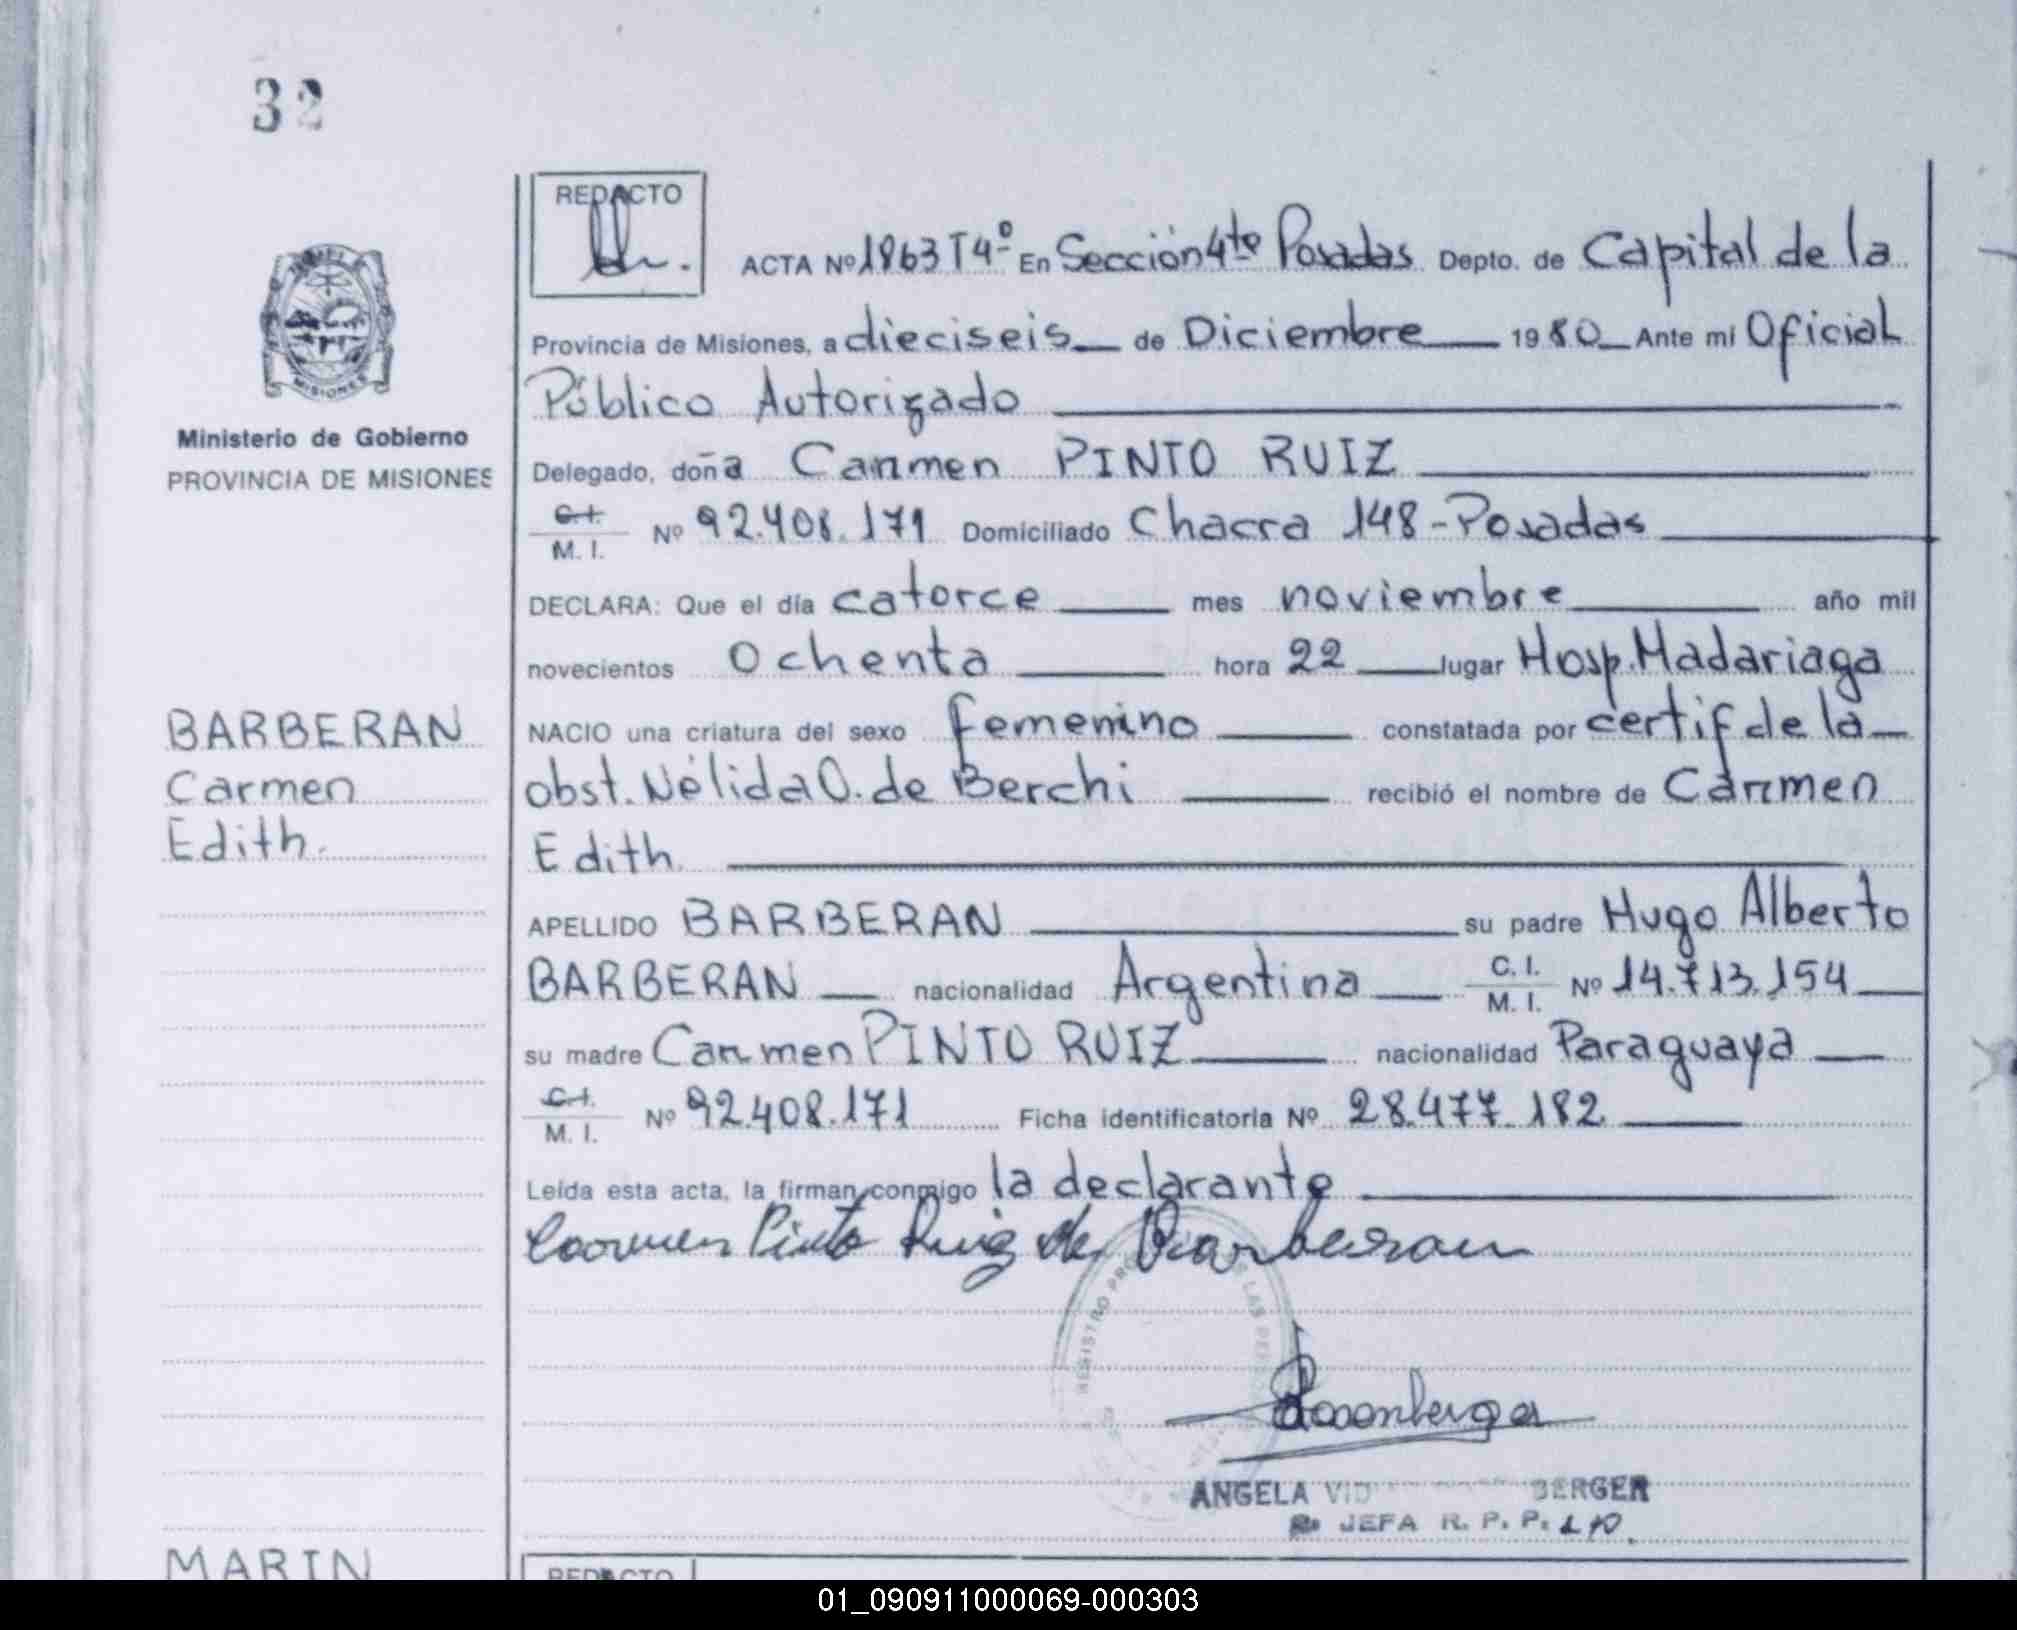 32
REDACTO
ACTA Nº 1863 T4º En Sección 4ta Posadas Depto. de Capital de la
Provincia de Misiones, a dieciseis de Diciembre 1980 Ante mi Oficial
Público Autorizado
Ministerio de Gobierno
PROVINCIA DE MISIONES
Delegado, doña Carmen PINTO RUIZ
C.I.
M. I. Nº 92.408.171 Domiciliado Chacra 148-Posadas
DECLARA: Que el día catorce mes noviembre año mil
novecientos Ochenta hora 22 lugar Hosp. Madariaga
BARBERAN
Carmen
Edith.
NACIO una criatura del sexo femenino constatada por certif de la
obst. Nélida O. de Berchi recibió el nombre de Carmen
Edith.
APELLIDO BARBERAN su padre Hugo Alberto
BARBERAN nacionalidad Argentina C. I.
M. I. Nº 14.713.154
su madre Carmen PINTO RUIZ nacionalidad Paraguaya
C.I.
M. I. Nº 92.408.171 Ficha identificatoria Nº 28.477.182
Leída esta acta, la firman conmigo la declarante
Carmen Pinto Ruiz de Barberan
REGISTRO LAS
ANGELA BERGER
JEFA R. P. P.
MARIN
REDACTO
01_090911000069-000303